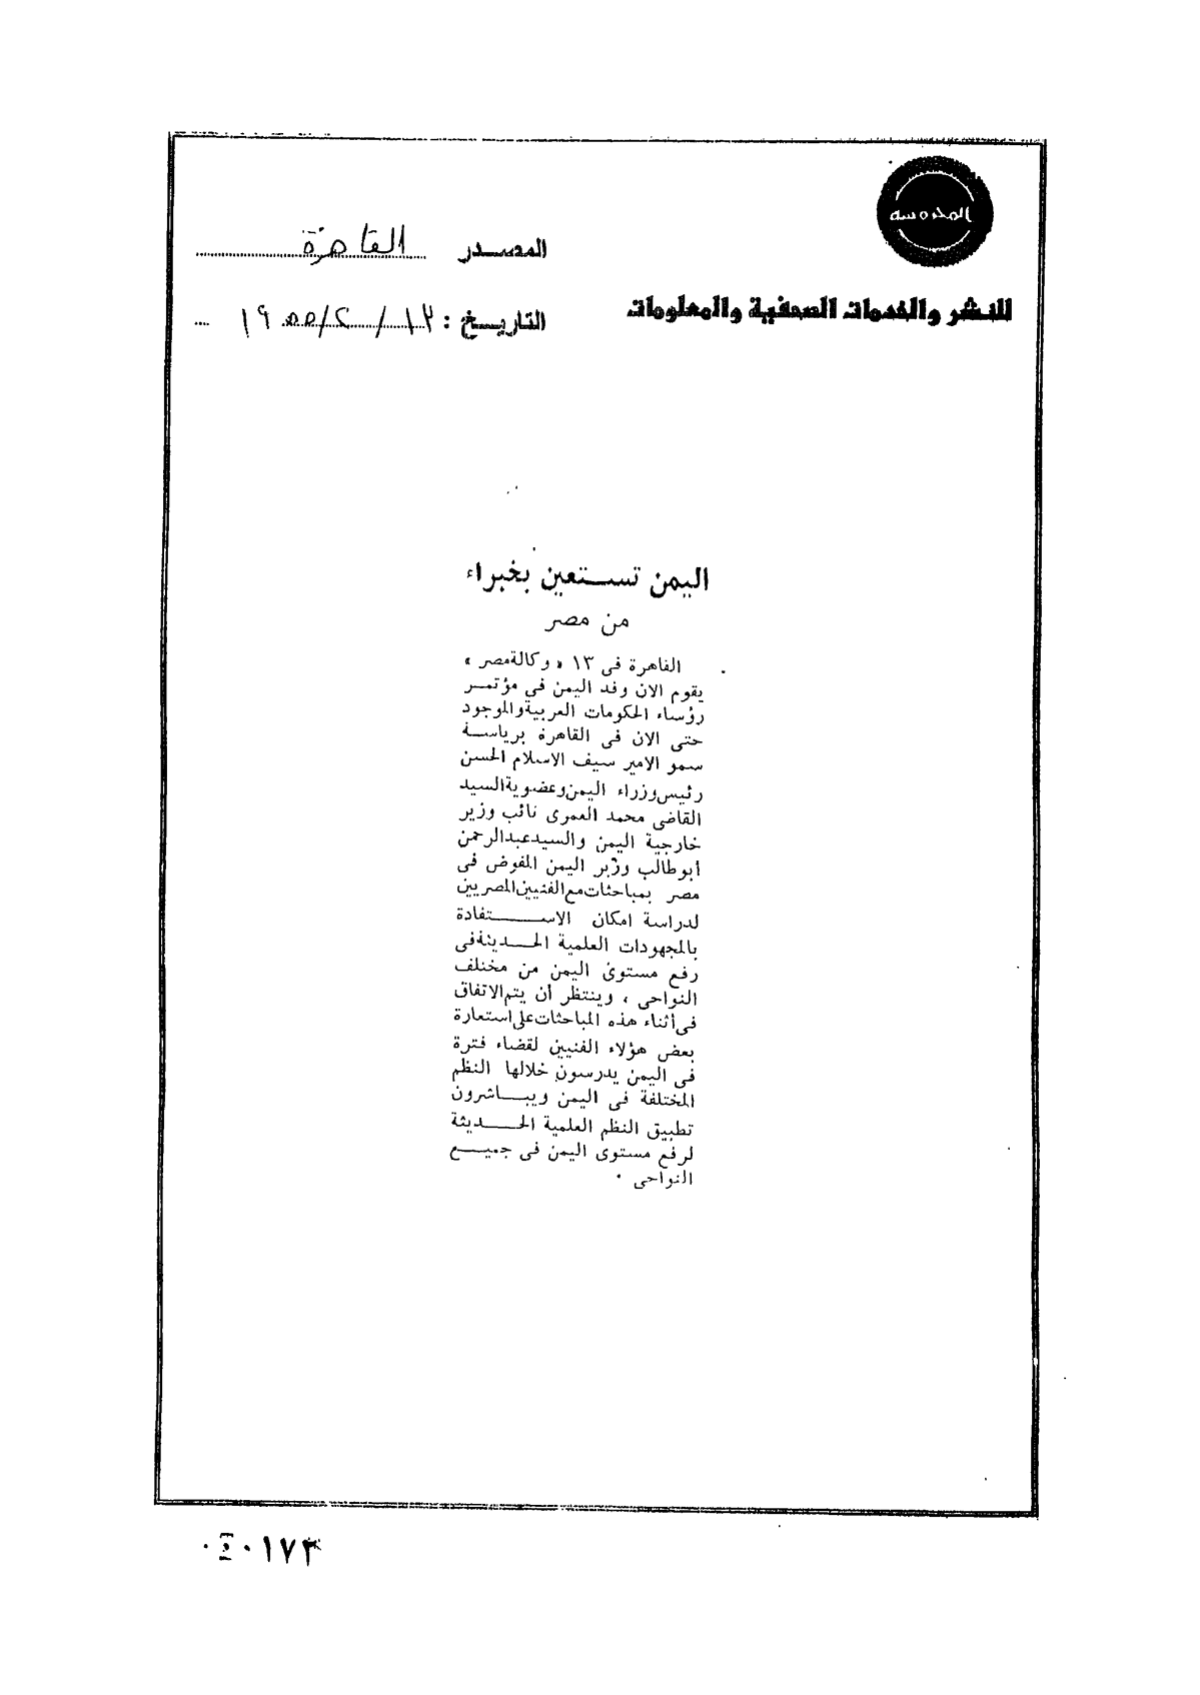 المحروسة
المصدر القاهرة
للنشر والخدمات الصحفية والمعلومات
التاريخ : ١٣ / ٢ / ١٩٥٥
اليمن تستعين بخبراء
من مصر
القاهرة فى ١٣ « وكالة مصر »
يقوم الان وفد اليمن فى مؤتمر
رؤساء الحكومات العربية والموجود
حتى الان فى القاهرة برياسة
سمو الامير سيف الاسلام الحسن
رئيس وزراء اليمن وعضوية السيد
القاضى محمد العمرى نائب وزير
خارجية اليمن والسيد عبدالرحمن
أبو طالب وزير اليمن المفوض فى
مصر بمباحثات مع الفنيين المصريين
لدراسة امكان الاستفادة
بالمجهودات العلمية الحديثة فى
رفع مستوى اليمن من مختلف
النواحى ، وينتظر أن يتم الاتفاق
فى أثناء هذه المباحثات على استعارة
بعض هؤلاء الفنيين لقضاء فترة
فى اليمن يدرسون خلالها النظم
المختلفة فى اليمن ويباشرون
تطبيق النظم العلمية الحديثة
لرفع مستوى اليمن فى جميع
النواحى .